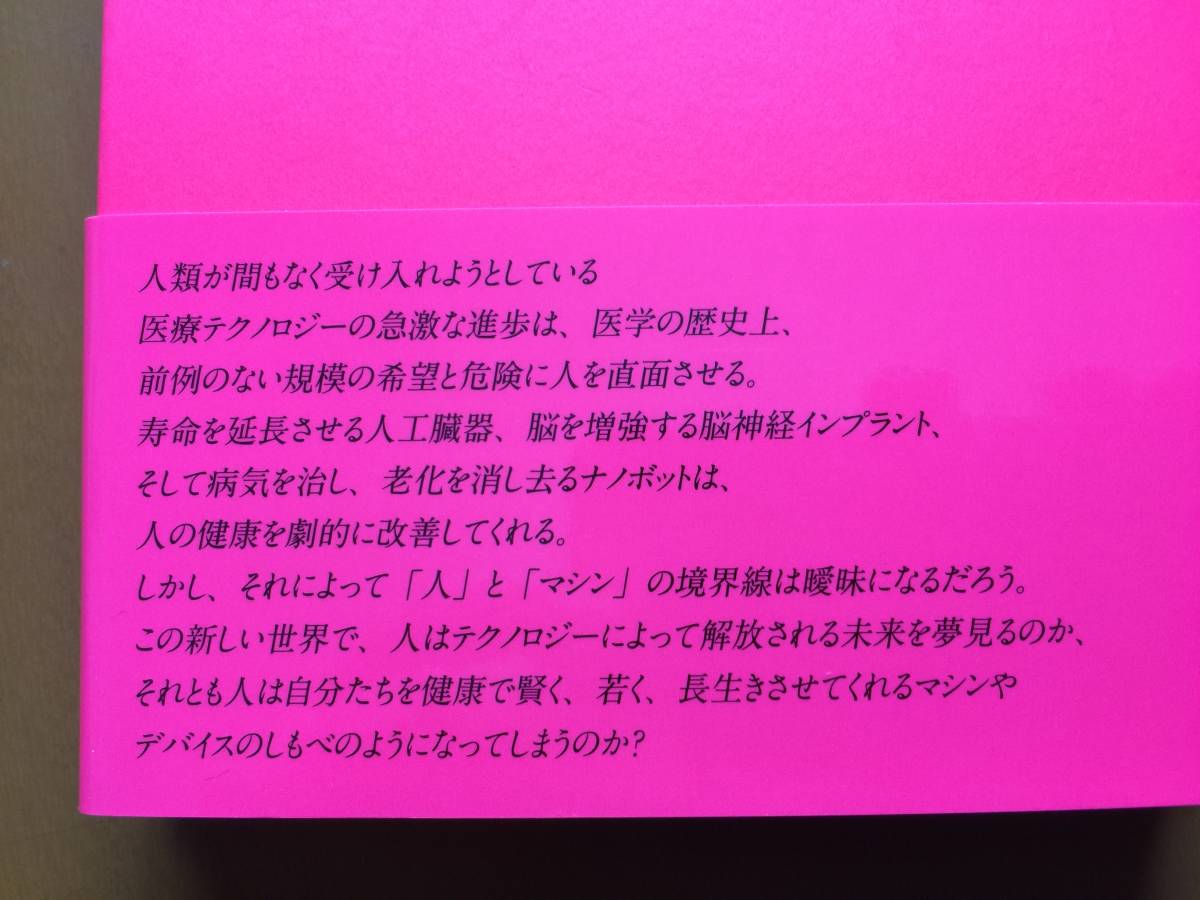 人類が間もなく受け入れようとしている
医療テクノロジーの急激な進歩は、医学の歴史上、
前例のない規模の希望と危険に人を直面させる。
寿命を延長させる人工臓器、脳を増強する脳神経インプラント、
そして病気を治し、老化を消し去るナノボットは、
人の健康を劇的に改善してくれる。
しかし、それによって「人」と「マシン」の境界線は曖昧になるだろう。
この新しい世界で、人はテクノロジーによって解放される未来を夢見るのか、
それとも人は自分たちを健康で賢く、若く、長生きさせてくれるマシンや
デバイスのしもべのようになってしまうのか?